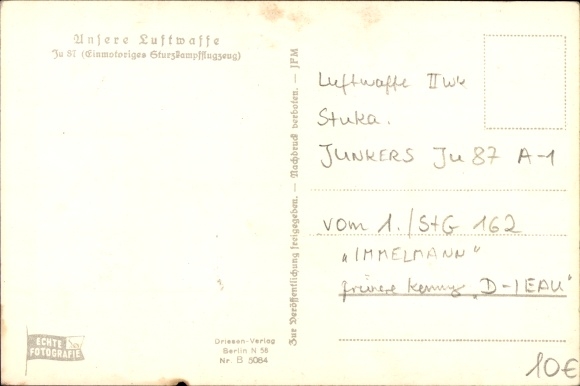 Unsere Luftwaffe
Ju 87 (Einmotoriges Sturzkampfflugzeug)
Zur Veröffentlichung freigegeben. — Nachdruck verboten. — JFM
Luftwaffe II Wk
Stuka.
JUNKERS Ju 87 A-1
vom 1./StG 162
"IMMELMANN"
frühere Kennung "D-IEAU"
ECHTE
FOTOGRAFIE
Driesen-Verlag
Berlin N 58
Nr. B 5084
10€